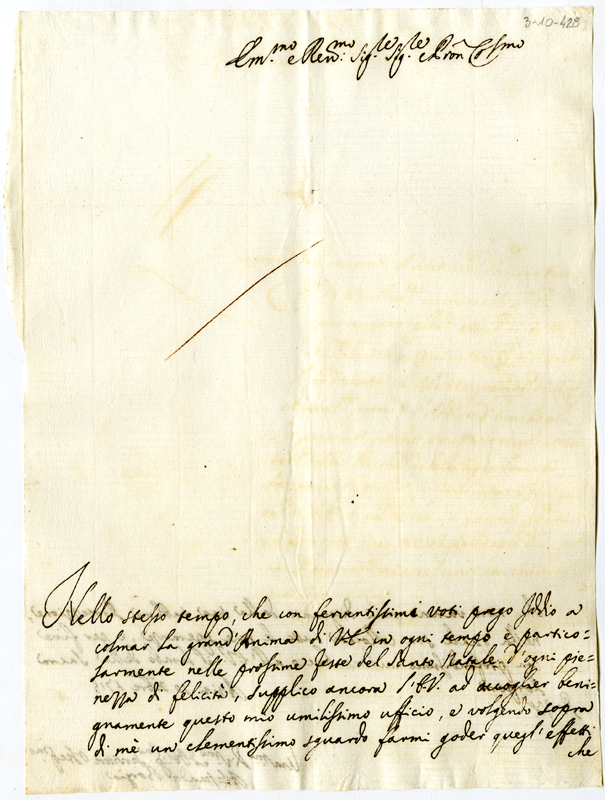 3-10-428
Em.mo e Rev.mo Sig.re Sig.re e Pron Col.mo
Nello stesso tempo, che con ferventissimi voti prego Iddio a
colmar la grand'Anima di V.E. in ogni tempo e partico=
larmente nelle prossime feste del Santo Natale d'ogni pie=
nezza di felicità, supplico ancora l'E.V. ad accoglier beni=
gnamente questo mio umilissimo ufficio, e volgendo sopra
di mè un clementissimo sguardo farmi goder quegl'effetti
che